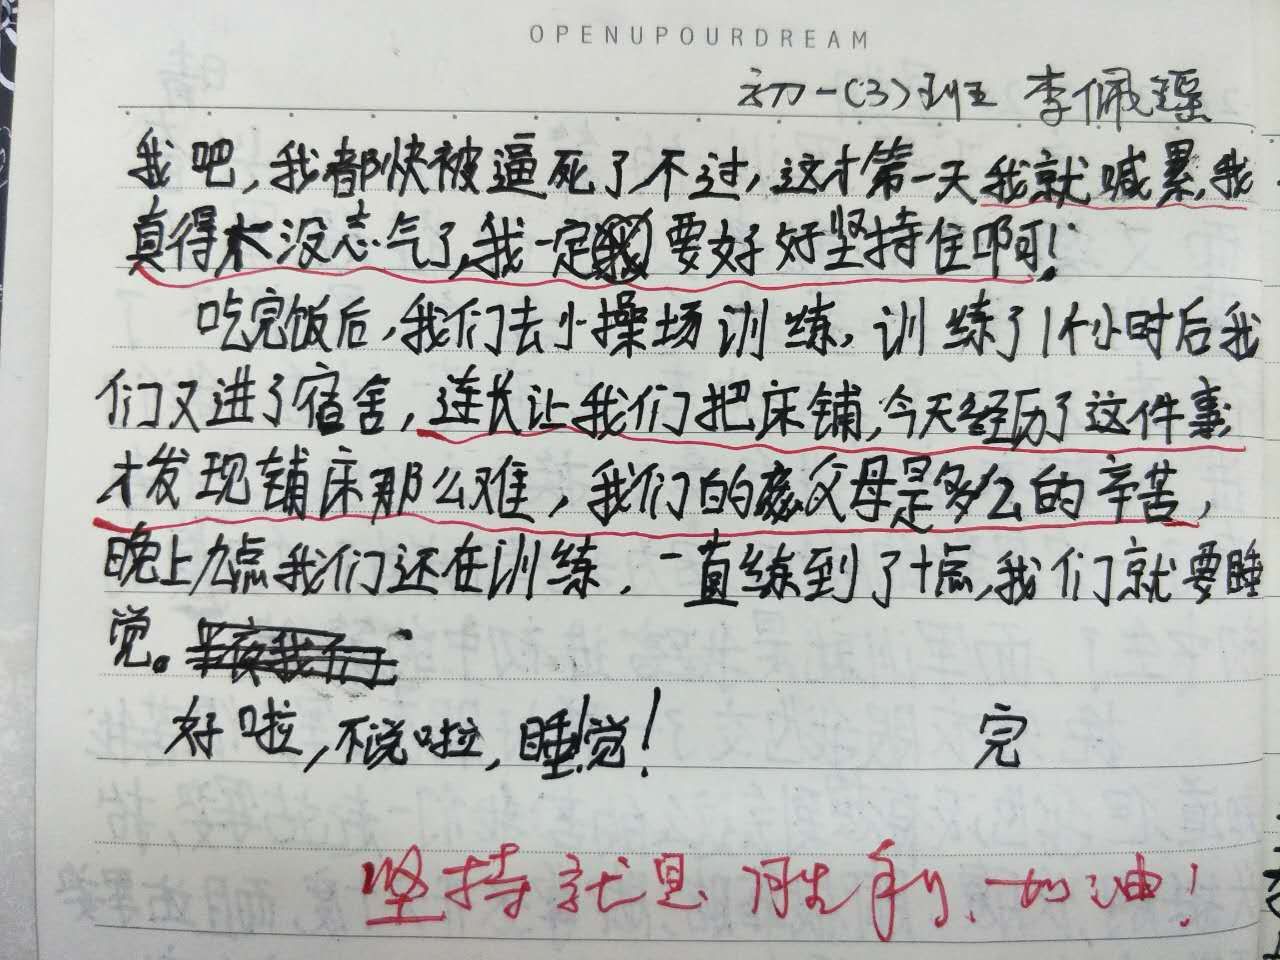 OPENUPOURDREAM
初一(3)班 李佩瑶
我吧,我都快被逼死了不过,这才第一天我就喊累,我
真得太没志气了,我一定要好好坚持住啊!
吃完饭后,我们去小操场训练,训练了1个小时后我
们又进了宿舍,连长让我们把床铺,今天经历了这件事
才发现铺床那么难,我们的父母是多么的辛苦,
晚上九点我们还在训练,一直练到了十点,我们就要睡
觉。
好啦,不说啦,睡觉! 完
坚持就是胜利、加油!